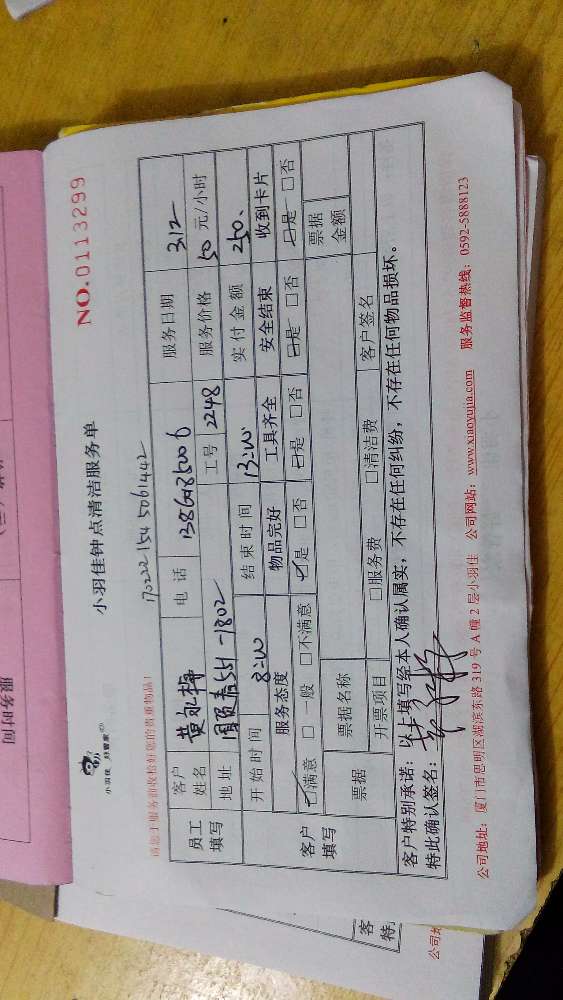 NO.0113299
小羽佳钟点清洁服务单
小羽佳 好管家
1702221545061442
请您于服务前收拾好您的贵重物品!
员工填写 客户姓名 黄永梅 电话 服务日期 312
地址 551-1802 工号 2248 服务价格 50 元/小时
开始时间 8:00 结束时间 13:00 实付金额 250.
客户填写 服务态度 物品完好 工具齐全 安全结束 收到卡片
☑满意 □一般 □不满意 ☑是 □否 ☑是 □否 ☑是 □否 ☑是 □否
票据 票据名称 票据金额
开票项目 □服务费 □清洁费 客户签名
客户特别承诺:以上填写经本人确认属实,不存在任何纠纷,不存在任何物品损坏。
特此确认签名:
公司地址:厦门市思明区湖滨东路 319 号 A 幢 2 层小羽佳 公司网站:www.xiaoyujia.com 服务监督热线:0592-5888123
服务时间
客
特
公司地